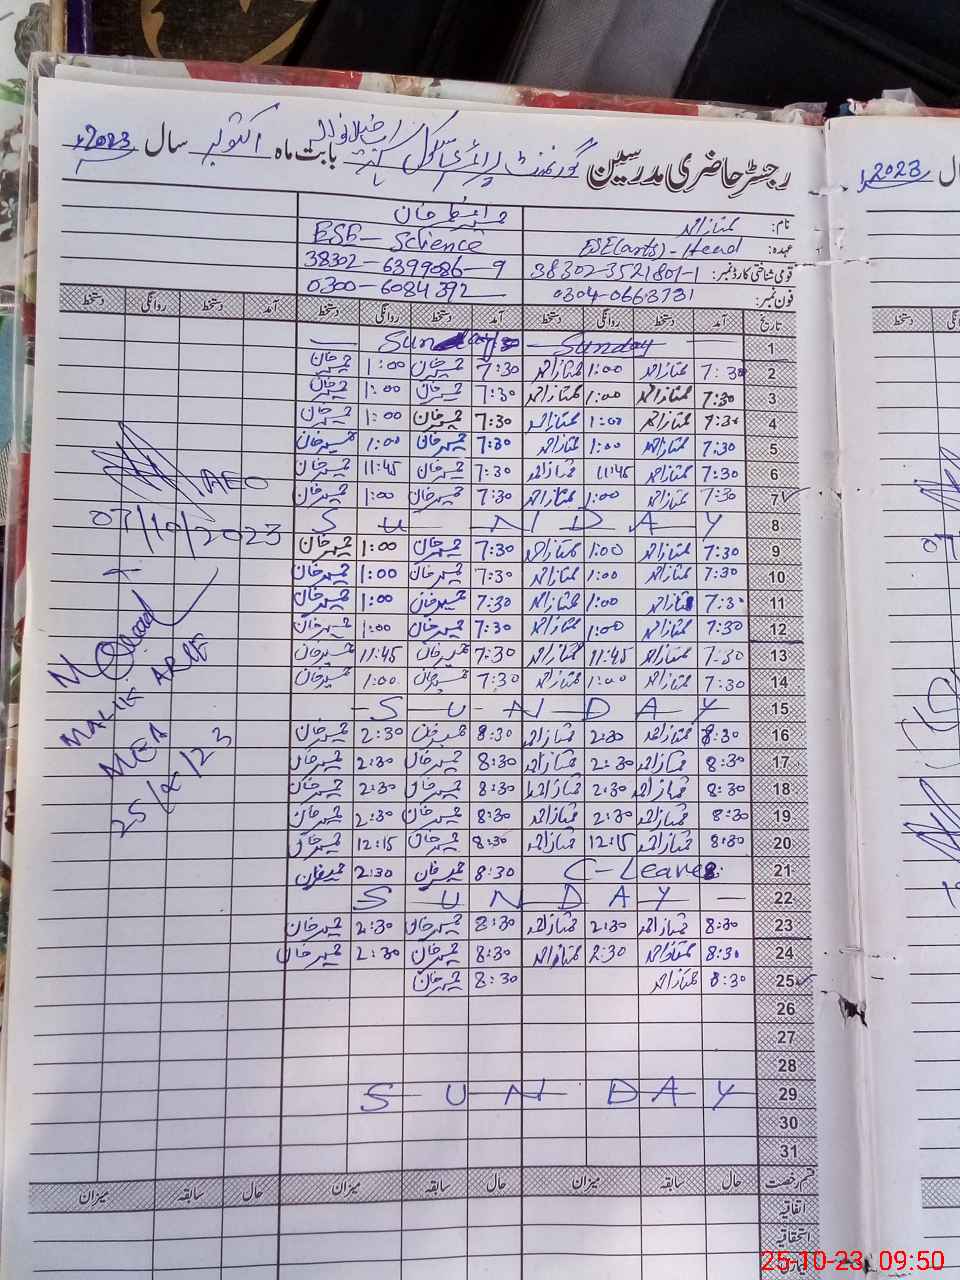 رجسٹر حاضری مدرسین گورنمنٹ پرائمری سکول بابت ماہ اکتوبر سال 2023ء
نام: ممتاز احمد حمید خان
عہدہ: ESE(arts) - Head ESE - Science
قومی شناختی کارڈ نمبر: 38302-3521801-1 38302-6399086-9
فون نمبر: 0304-0663731 0300-6084392
تاریخ آمد دستخط روانگی دستخط آمد دستخط روانگی دستخط آمد دستخط روانگی دستخط
1 Sunday Sunday
2 7:30 ممتاز احمد 1:00 ممتاز احمد 7:30 حمید خان 1:00 حمید خان
3 7:30 ممتاز احمد 1:00 ممتاز احمد 7:30 حمید خان 1:00 حمید خان
4 7:30 ممتاز احمد 1:00 ممتاز احمد 7:30 حمید خان 1:00 حمید خان
5 7:30 ممتاز احمد 1:00 ممتاز احمد 7:30 حمید خان 1:00 حمید خان
6 7:30 ممتاز احمد 11:45 ممتاز احمد 7:30 حمید خان 11:45 حمید خان
7 7:30 ممتاز احمد 1:00 ممتاز احمد 7:30 حمید خان 1:00 حمید خان
8 SUNDAY
9 7:30 ممتاز احمد 1:00 ممتاز احمد 7:30 حمید خان 1:00 حمید خان
10 7:30 ممتاز احمد 1:00 ممتاز احمد 7:30 حمید خان 1:00 حمید خان
11 7:30 ممتاز احمد 1:00 ممتاز احمد 7:30 حمید خان 1:00 حمید خان
12 7:30 ممتاز احمد 1:00 ممتاز احمد 7:30 حمید خان 1:00 حمید خان
13 7:30 ممتاز احمد 11:45 ممتاز احمد 7:30 حمید خان 11:45 حمید خان
14 7:30 ممتاز احمد 1:00 ممتاز احمد 7:30 حمید خان 1:00 حمید خان
15 SUNDAY
16 8:30 ممتاز احمد 2:30 ممتاز احمد 8:30 حمید خان 2:30 حمید خان
17 8:30 ممتاز احمد 2:30 ممتاز احمد 8:30 حمید خان 2:30 حمید خان
18 8:30 ممتاز احمد 2:30 ممتاز احمد 8:30 حمید خان 2:30 حمید خان
19 8:30 ممتاز احمد 2:30 ممتاز احمد 8:30 حمید خان 2:30 حمید خان
20 8:30 ممتاز احمد 12:15 ممتاز احمد 8:30 حمید خان 12:15 حمید خان
21 C-Leave 8:30 حمید خان 2:30 حمید خان
22 SUNDAY
23 8:30 ممتاز احمد 2:30 ممتاز احمد 8:30 حمید خان 2:30 حمید خان
24 8:30 ممتاز احمد 2:30 ممتاز احمد 8:30 حمید خان 2:30 حمید خان
25 8:30 ممتاز احمد 8:30 حمید خان
26
27
28
29 SUNDAY
30
31
قسم رخصت حال سابقہ میزان حال سابقہ میزان حال سابقہ میزان
اتفاقیہ
استحقاقیہ
AEO
07/10/2023
MALIK ARIF
MEA
25/x/23
2023ء
دستخط
25-10-23 09:50